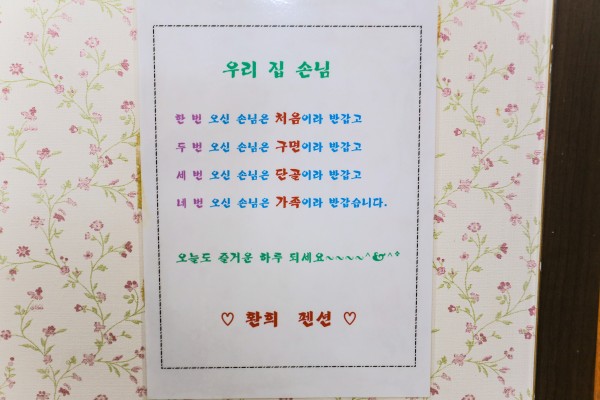 우리 집 손님
한 번 오신 손님은 처음이라 반갑고
두 번 오신 손님은 구면이라 반갑고
세 번 오신 손님은 단골이라 반갑고
네 번 오신 손님은 가족이라 반갑습니다.
오늘도 즐거운 하루 되세요~~~~^&^°
♡ 환희 펜션 ♡